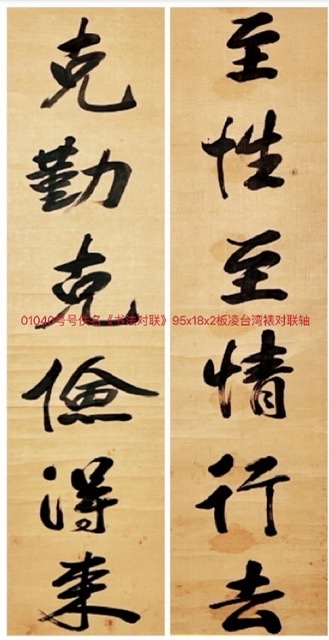 至性至情行去
克勤克儉得来
01040号号佚名《书法对联》95x18x2板凌台湾裱对联轴